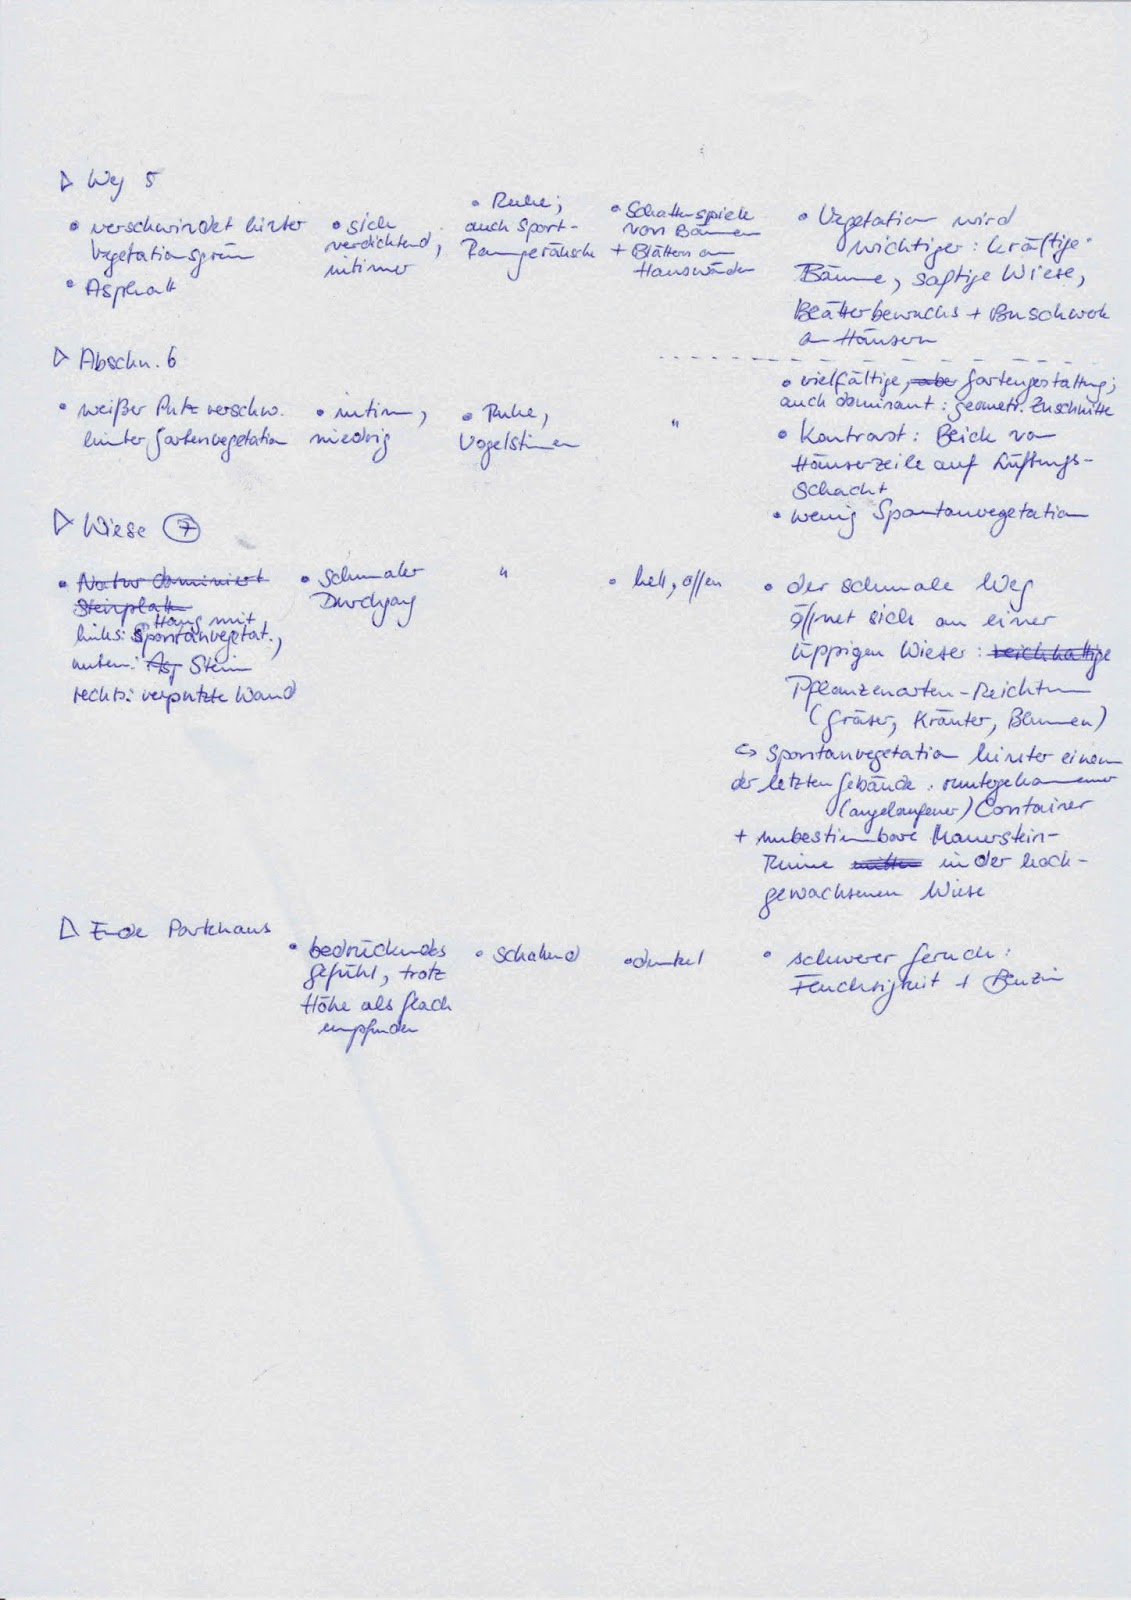 ▷ Weg 5
• verschwindet hinter
Vegetationsgrün
• Asphalt
• sich
verdichtend,
intimer
• Ruhe;
auch Sport-
Raumgeräusche
• Schattenspiele
von Bäumen
+ Blättern an
Hauswänden
• Vegetation wird
wichtiger: kräftige
Bäume, saftige Wiese,
Blätterbewuchs + Buschwerk
an Häusern
▷ Abschn. 6
• weißer Putz verschw.
hinter Gartenvegetation
• intim,
niedrig
• Ruhe,
Vogelstimmen
"
• vielfältige, aber Gartengestaltung;
auch dominant: geometr. Zuschnitte
• Kontrast: Blick von
Häuserzeile auf Lüftungs-
schacht
• wenig Spontanvegetation
▷ Wiese 7
• Natur dominiert
Steinplatt
links: Hang mit
Spontanvegetat.,
unten: Asp Stein
rechts: verputzte Wand
• Schmaler
Durchgang
"
• hell, offen
• der schmale Weg
öffnet sich an einer
üppigen Wiese: reichhaltige
Pflanzenarten-Reichtum
(Gräser, Kräuter, Blumen)
↪ Spontanvegetation hinter einem
der letzten Gebäude. runtergekommener
(angelaufener) Container
+ unbestimmbare Mauerstein-
Ruine mitten in der hoch-
gewachsenen Wiese
▷ Ende Parkhaus
• bedrückendes
Gefühl, trotz
Höhe als flach
empfunden
• schallend
• dunkel
• schwerer Geruch:
Feuchtigkeit + Benzin